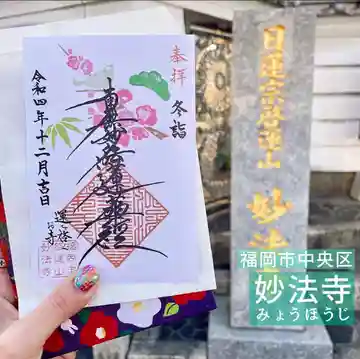 奉拝
冬詣
南無妙法蓮華経
令和四年十二月吉日
妙法寺
日蓮宗啓運山 妙法
福岡市中央区
妙法寺
みょうほうじ